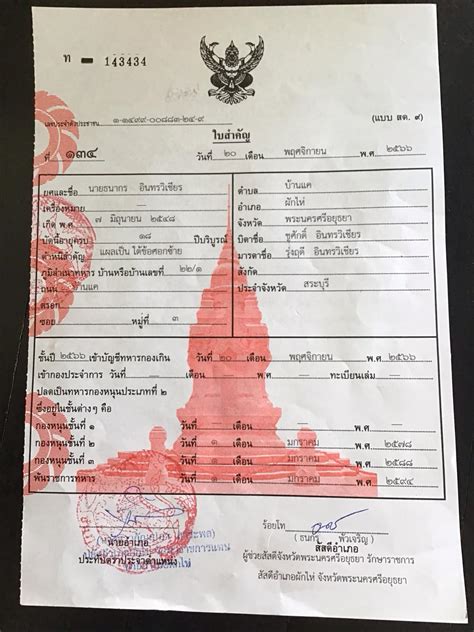 ท - 143434
เลขประจำตัวประชาชน ๑-๑๔๙๙-๐๐๘๘๑-๒๔-๙
(แบบ สด. ๙)
ใบสำคัญ
ที่ ๑๓๔ วันที่ ๒๐ เดือน พฤศจิกายน พ.ศ. ๒๕๖๖
ยศและชื่อ นายธนากร อินทรวิเชียร
เครื่องหมาย —
เกิด พ.ศ. ๗ มิถุนายน ๒๕๔๘
ปีนี้อายุครบ ๑๘ ปีบริบูรณ์
ตำหนิสำคัญ แผลเป็น ใต้ข้อศอกซ้าย
ภูมิลำเนาทหาร บ้านหรือบ้านเลขที่ ๒๒/๑
ถนน บ้านแค
ตรอก —
ซอย หมู่ที่ ๓
ตำบล บ้านแค
อำเภอ ผักไห่
จังหวัด พระนครศรีอยุธยา
บิดาชื่อ ชูศักดิ์ อินทรวิเชียร
มารดาชื่อ รุ่งฤดี อินทรวิเชียร
สังกัด
ประจำจังหวัด สระบุรี
ขึ้นปี ๒๕๖๖ เข้าบัญชีทหารกองเกิน วันที่ ๒๐ เดือน พฤศจิกายน พ.ศ. ๒๕๖๖
เข้ากองประจำการ วันที่ — เดือน — พ.ศ. — ทะเบียนเลข —
ปลดเป็นทหารกองหนุนประเภทที่ ๒
ซึ่งอยู่ในชั้นต่างๆ คือ
กองหนุนชั้นที่ ๑ วันที่ — เดือน — พ.ศ. —
กองหนุนชั้นที่ ๒ วันที่ ๑ เดือน มกราคม พ.ศ. ๒๕๗๘
กองหนุนชั้นที่ ๓ วันที่ ๑ เดือน มกราคม พ.ศ. ๒๕๘๘
พ้นราชการทหาร วันที่ ๑ เดือน มกราคม พ.ศ. ๒๕๙๔
นายอำเภอ
ประทับตราประจำตำแหน่ง
ร้อยโท
( ธนกร พัวเจริญ )
สัสดีอำเภอ
ผู้ช่วยสัสดีจังหวัดพระนครศรีอยุธยา รักษาราชการ
สัสดีอำเภอผักไห่ จังหวัดพระนครศรีอยุธยา